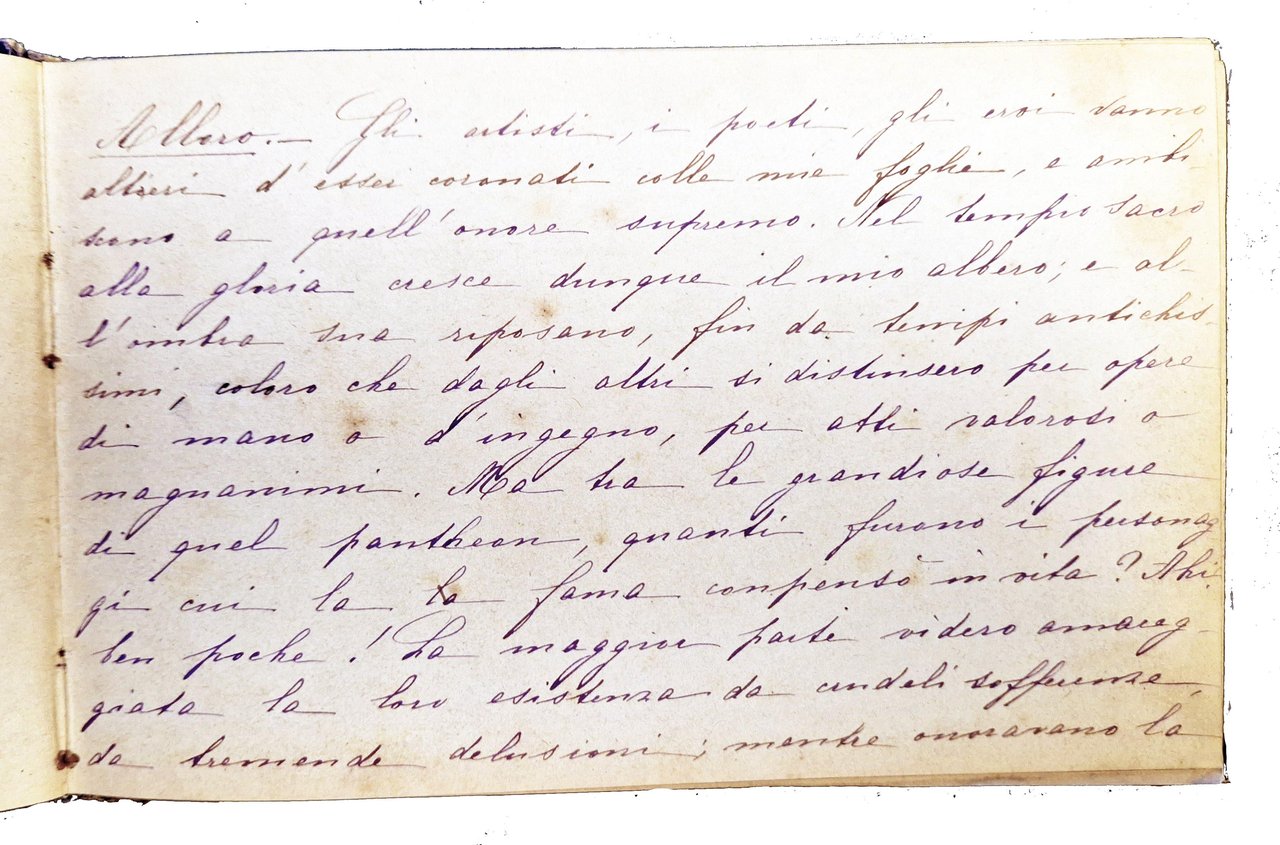 Alloro. — Gli artisti, i poeti, gli eroi vanno
altieri d'esser coronati colle mie foglie, e ambi-
scono a quell'onore supremo. Nel tempio sacro
alla gloria cresce dunque il mio albero; e al-
l'ombra sua riposano, fin da tempi antichis-
simi, coloro che dagli altri si distinsero per opere
di mano o d'ingegno, per atti valorosi o
magnanimi. Ma tra le grandiose figure
di quel pantheon, quanti furono i personag
gi cui la la fama conpensò in vita? Ahi
ben poche! La maggior parte videro amareg-
giata la loro esistenza da crudeli sofferenze,
da tremende delusioni; mentre onoravano la